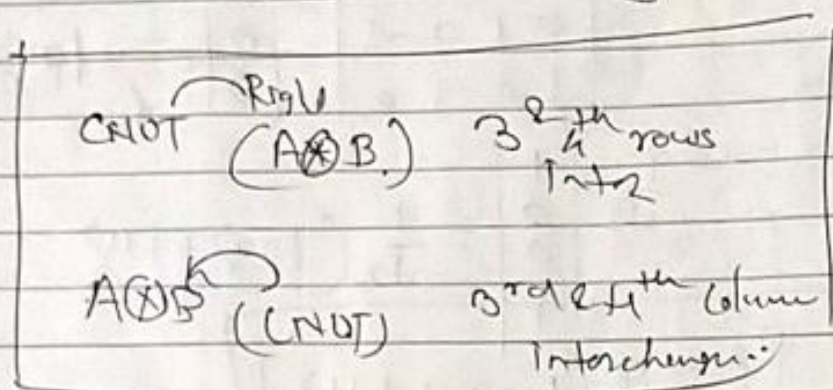 CNOT Right
(A⊗B.) 3 & 4th rows
Inter
A⊗B (CNOT) 3rd & 4th Column
interchange..